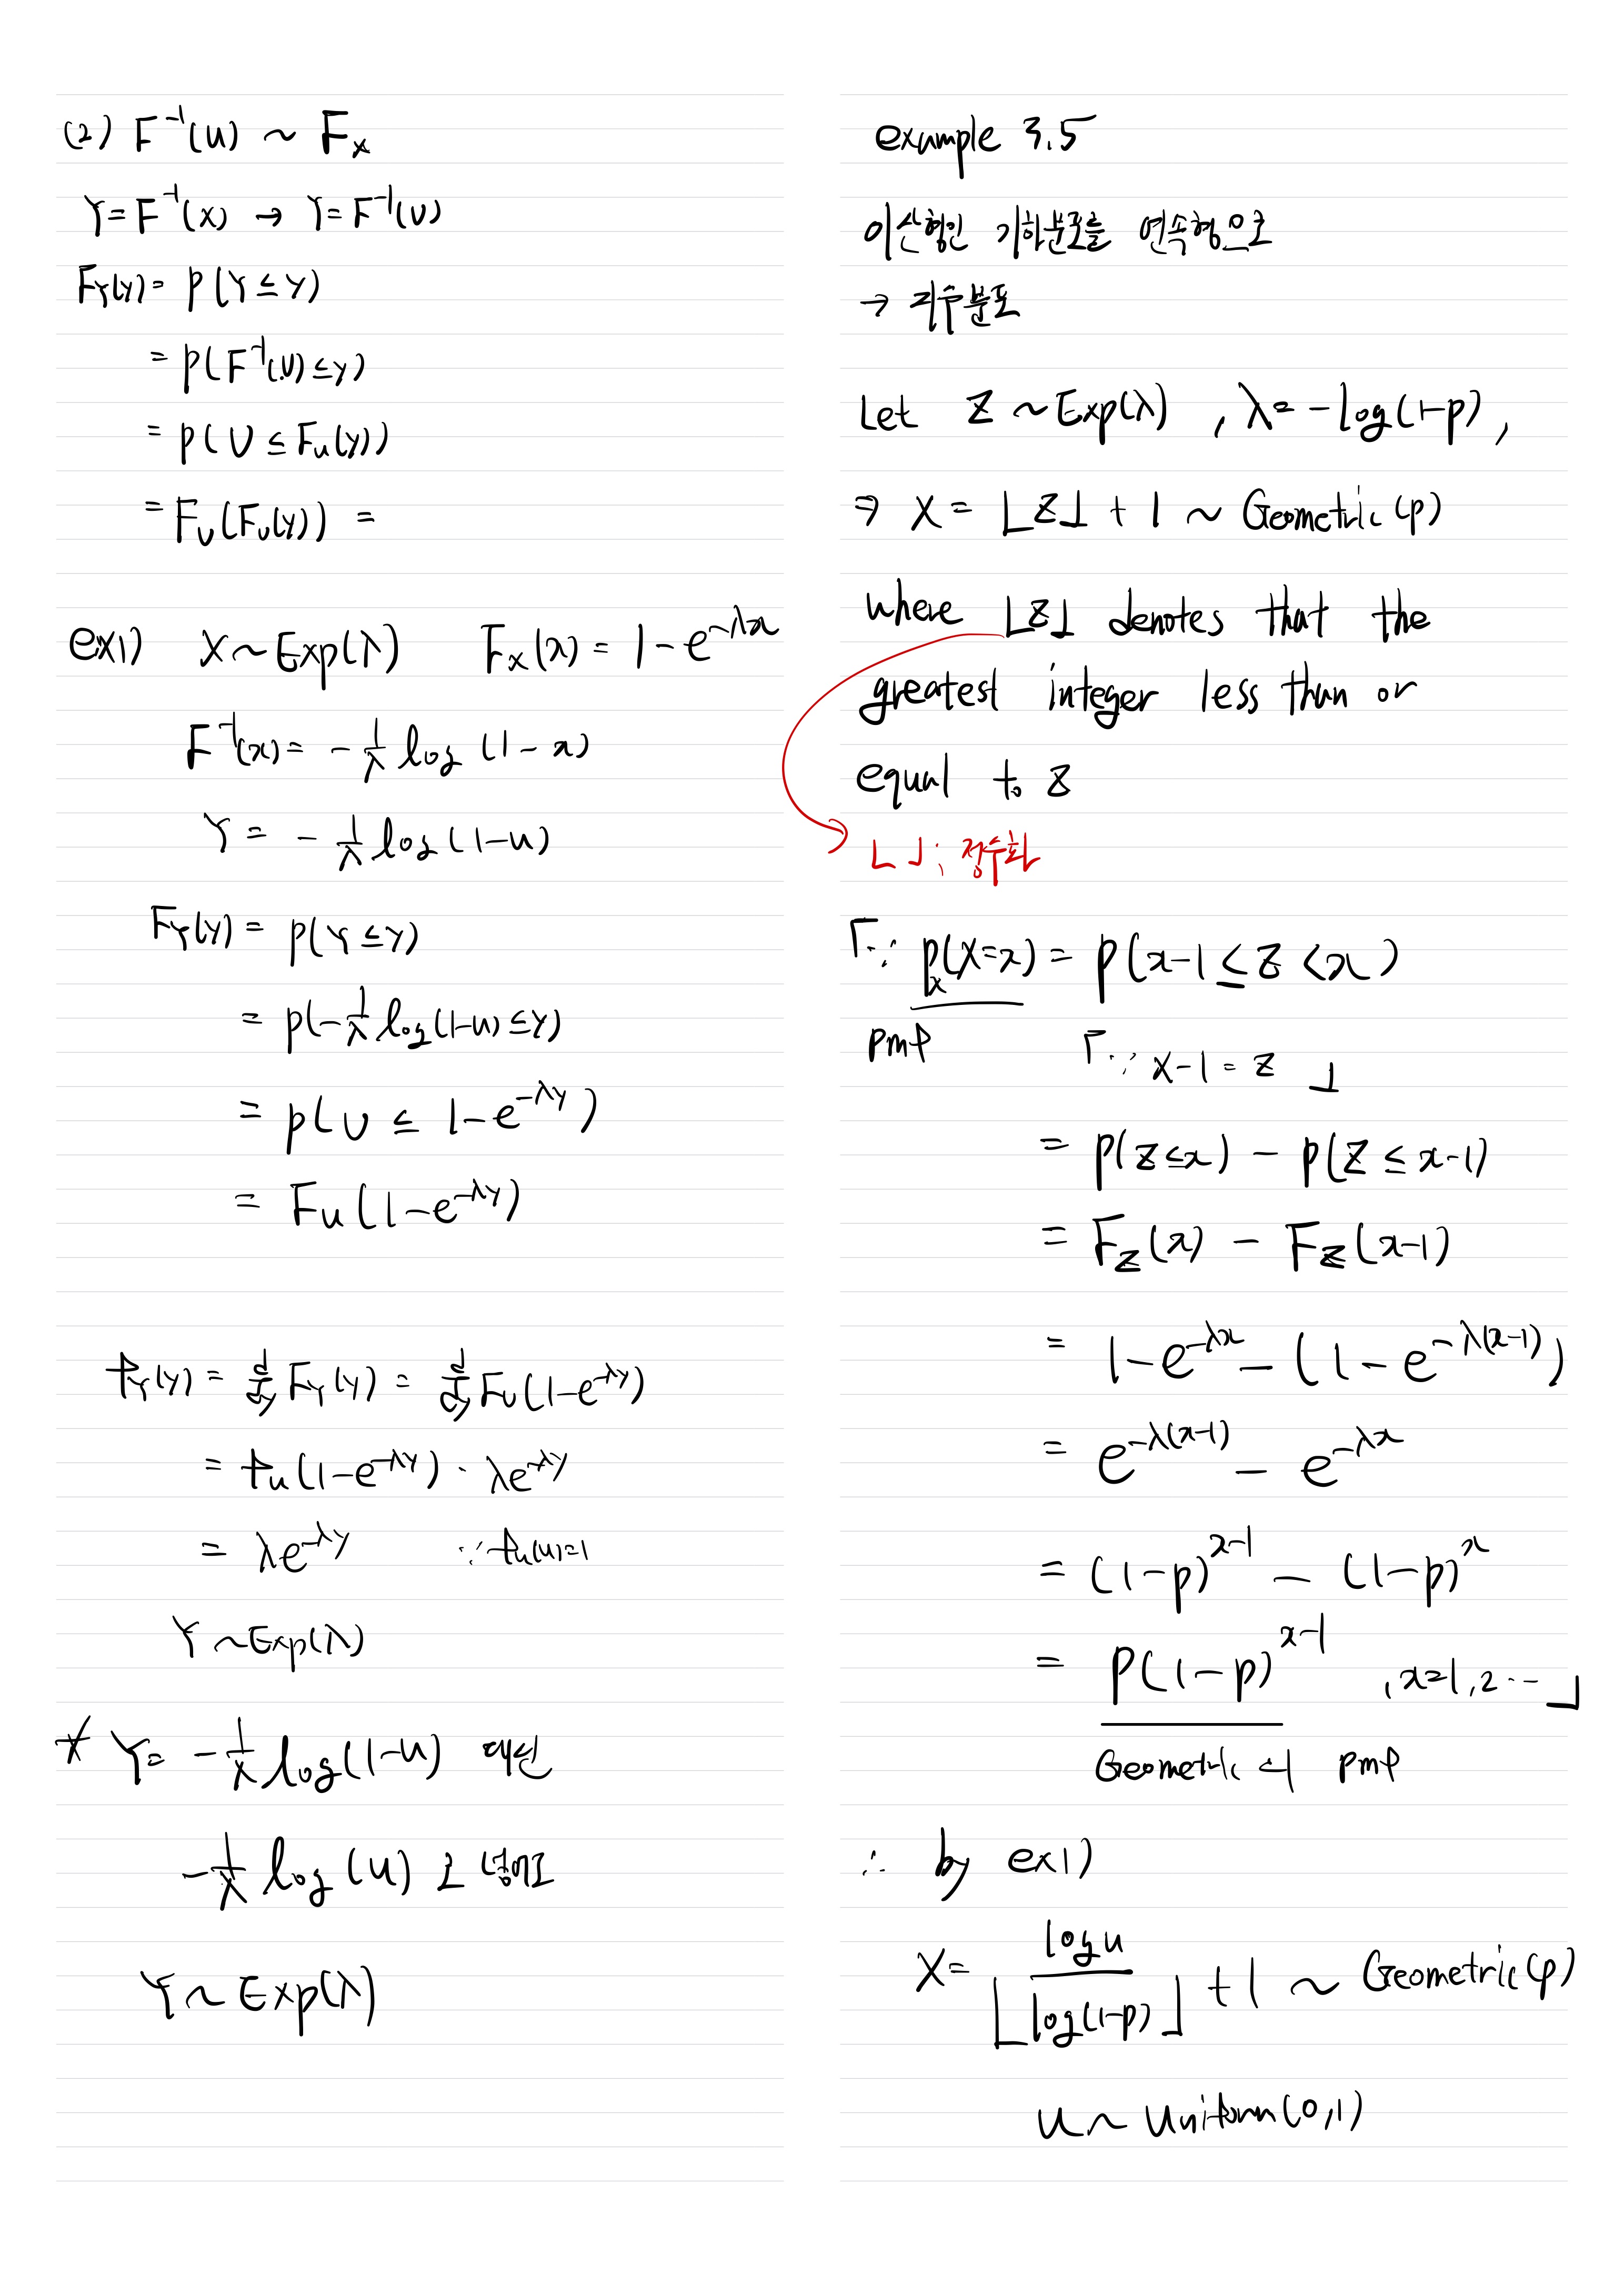 (2) F⁻¹(u) ~ F_X
Y = F⁻¹(x) → Y = F⁻¹(U)
F_Y(y) = P(Y ≤ y)
= P(F⁻¹(U) ≤ y)
= P(U ≤ F_u(y))
= F_U(F_U(y)) =
ex1) X ~ Exp(λ) F_X(x) = 1 - e^{-λx}
F⁻¹(x) = - 1/λ log (1 - x)
Y = - 1/λ log (1-u)
F_Y(y) = P(Y ≤ y)
= P(- 1/λ log(1-u) ≤ y)
= P(U ≤ 1 - e^{-λy})
= F_u(1 - e^{-λy})
f_Y(y) = d/dy F_Y(y) = d/dy F_U(1 - e^{-λy})
= f_u(1 - e^{-λy}) · λe^{-λy}
= λe^{-λy} ∵ f_u(u) = 1
Y ~ Exp(λ)
* Y = - 1/λ log(1-u) 대신
- 1/λ log(u) 로 넣어도
Y ~ Exp(λ)
example 3.5
이산형인 기하분포를 연속형으로
→ 지수분포
Let Z ~ Exp(λ) , λ = -log(1-p) ,
⇒ X = ⌊Z⌋ + 1 ~ Geometric(p)
where ⌊Z⌋ denotes that the
greatest integer less than or
equal to z
⌊ ⌋ ; 정수화
「∵ P_X(X=x) = P(x-1 ≤ Z < x)
pmf 「∵ X-1 = Z 」
= P(Z ≤ x) - P(Z ≤ x-1)
= F_Z(x) - F_Z(x-1)
= 1 - e^{-λx} - (1 - e^{-λ(x-1)})
= e^{-λ(x-1)} - e^{-λx}
= (1-p)^{x-1} - (1-p)^x
= P(1-p)^{x-1} , x=1, 2 ··· 」
Geometric의 pmf
∴ by ex1)
X = ⌊ log u / log(1-p) ⌋ + 1 ~ Geometric(p)
u ~ Uniform(0,1)